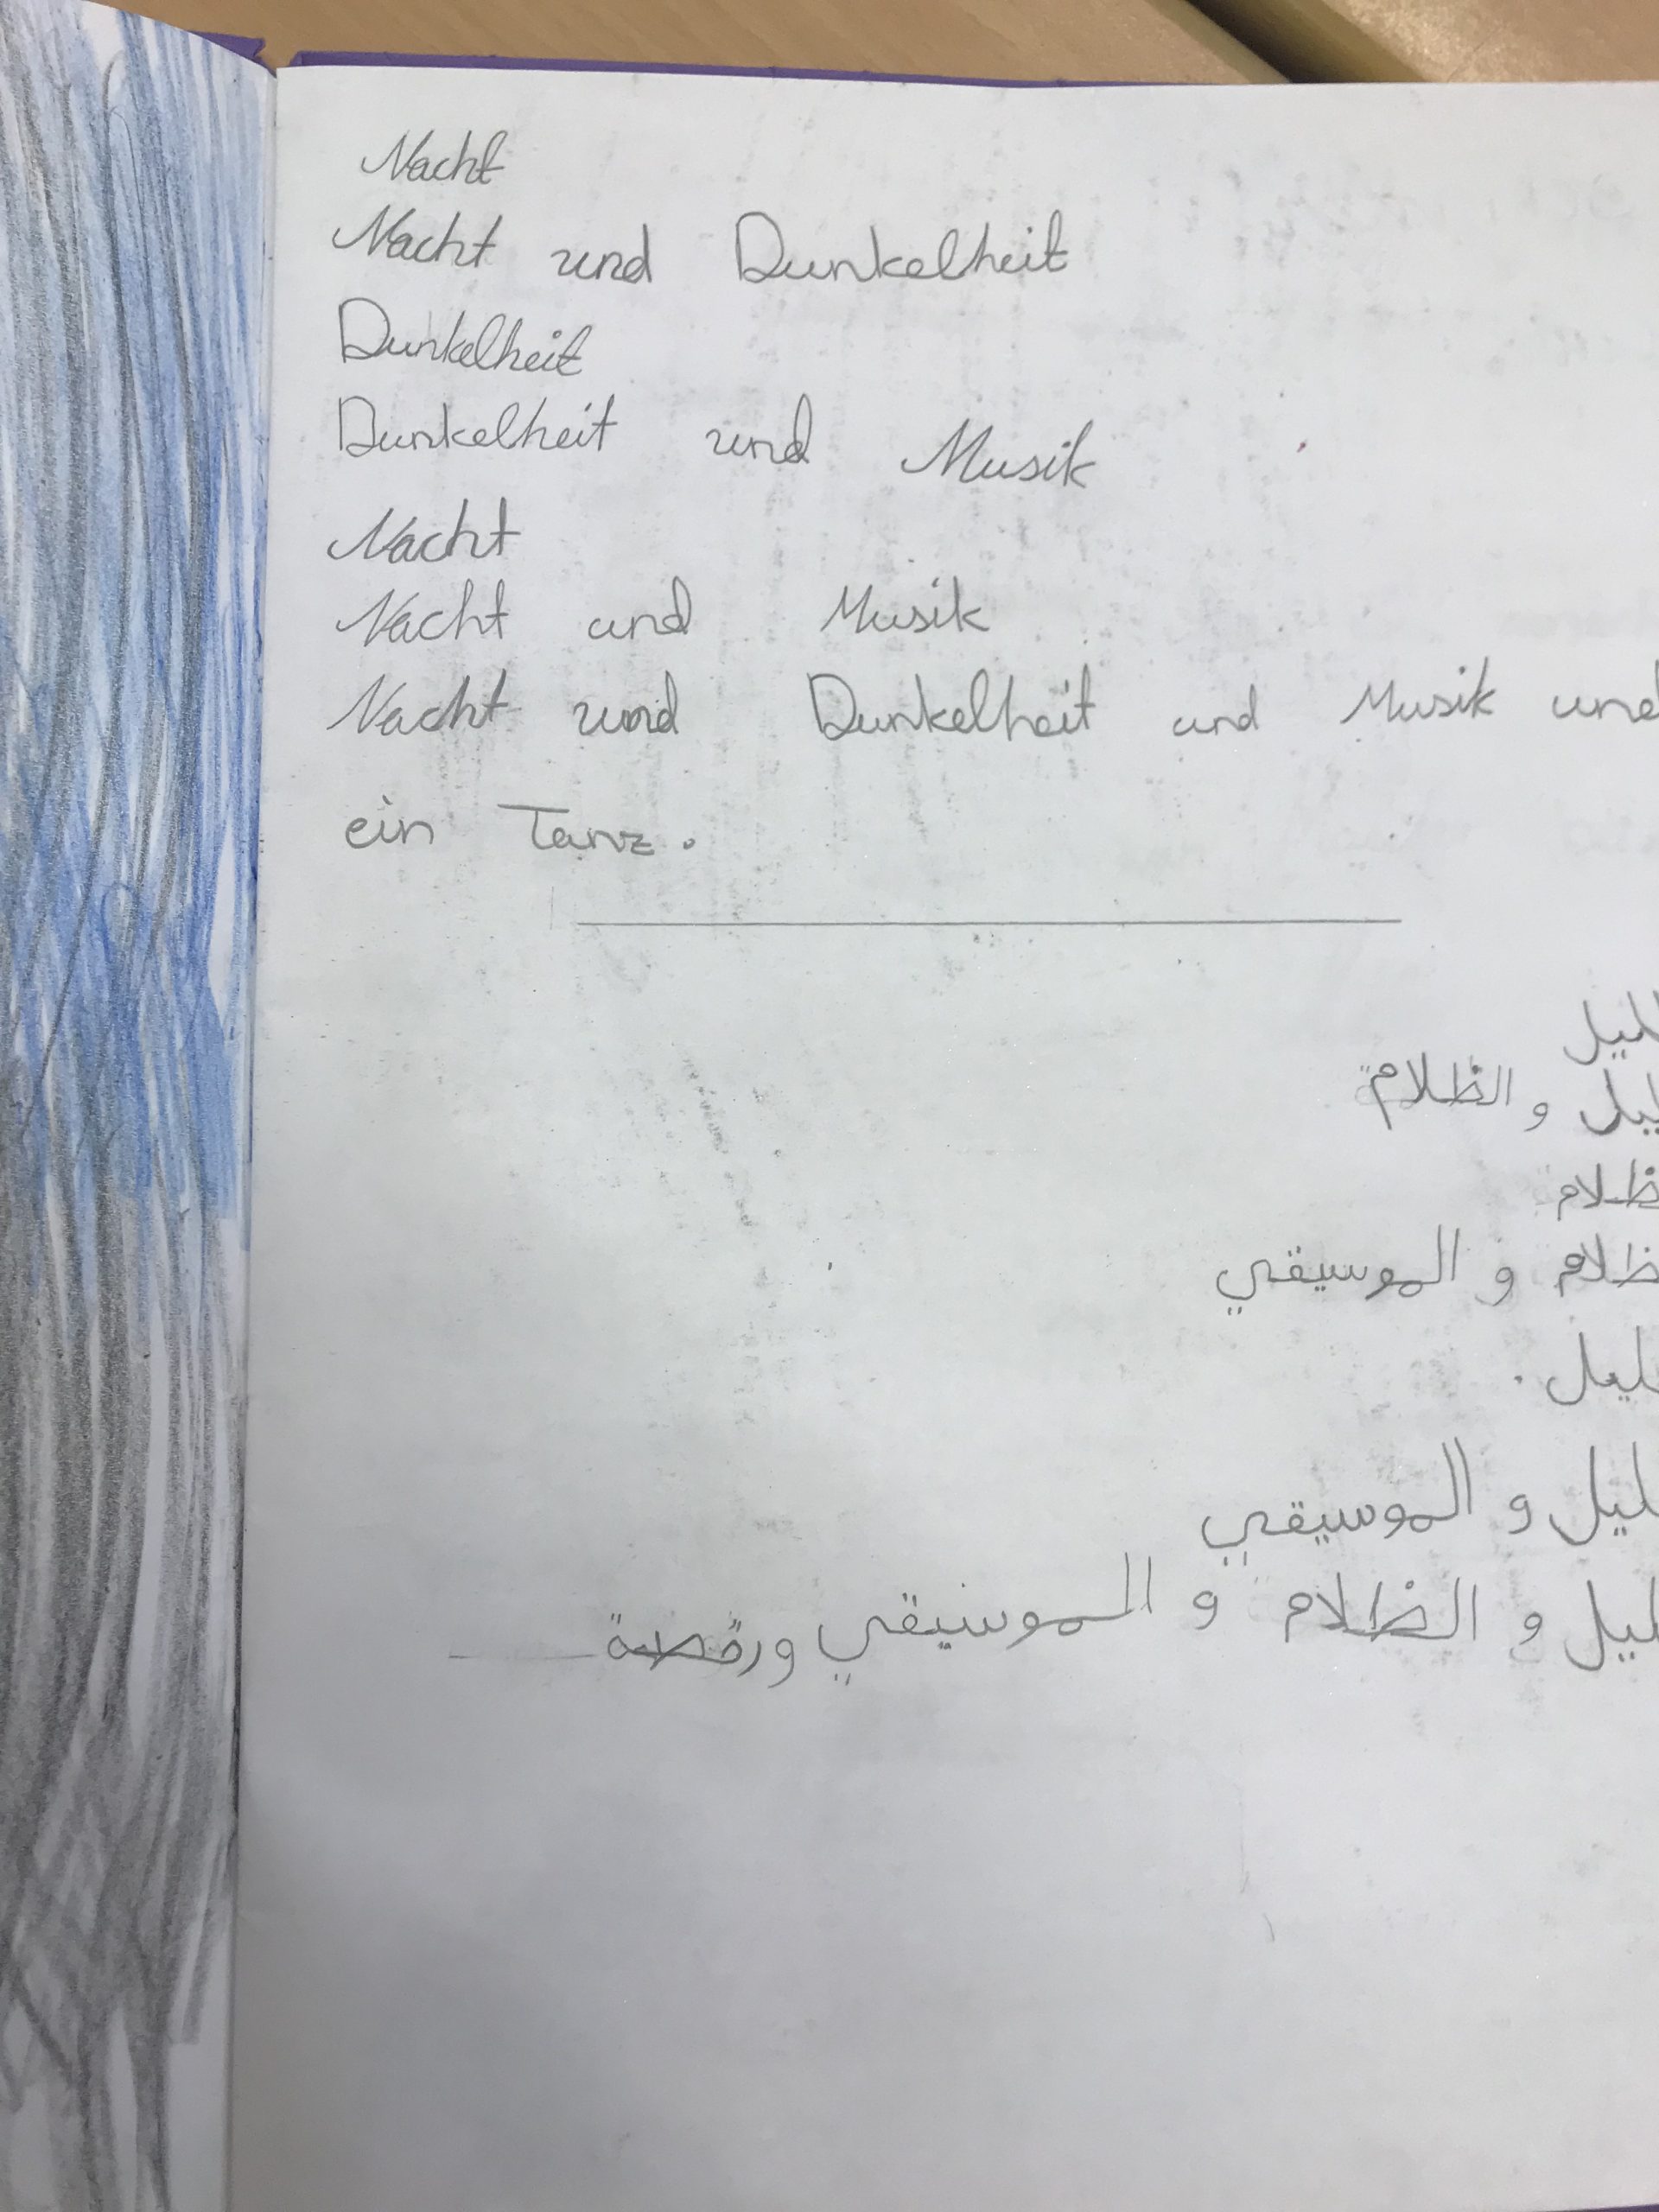 Nacht
Nacht und Dunkelheit
Dunkelheit
Dunkelheit und Musik
Nacht
Nacht und Musik
Nacht und Dunkelheit und Musik und
ein Tanz.
لليل
ليل و الظلام
ظلام
ظلام و الموسيقي
ليل.
ليل و الموسيقي
ليل و الظلام و الموسيقي ورقصة